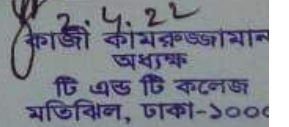 2.4.22
কাজী কামরুজ্জামান
অধ্যক্ষ
টি এন্ড টি কলেজ
মতিঝিল, ঢাকা-১০০০